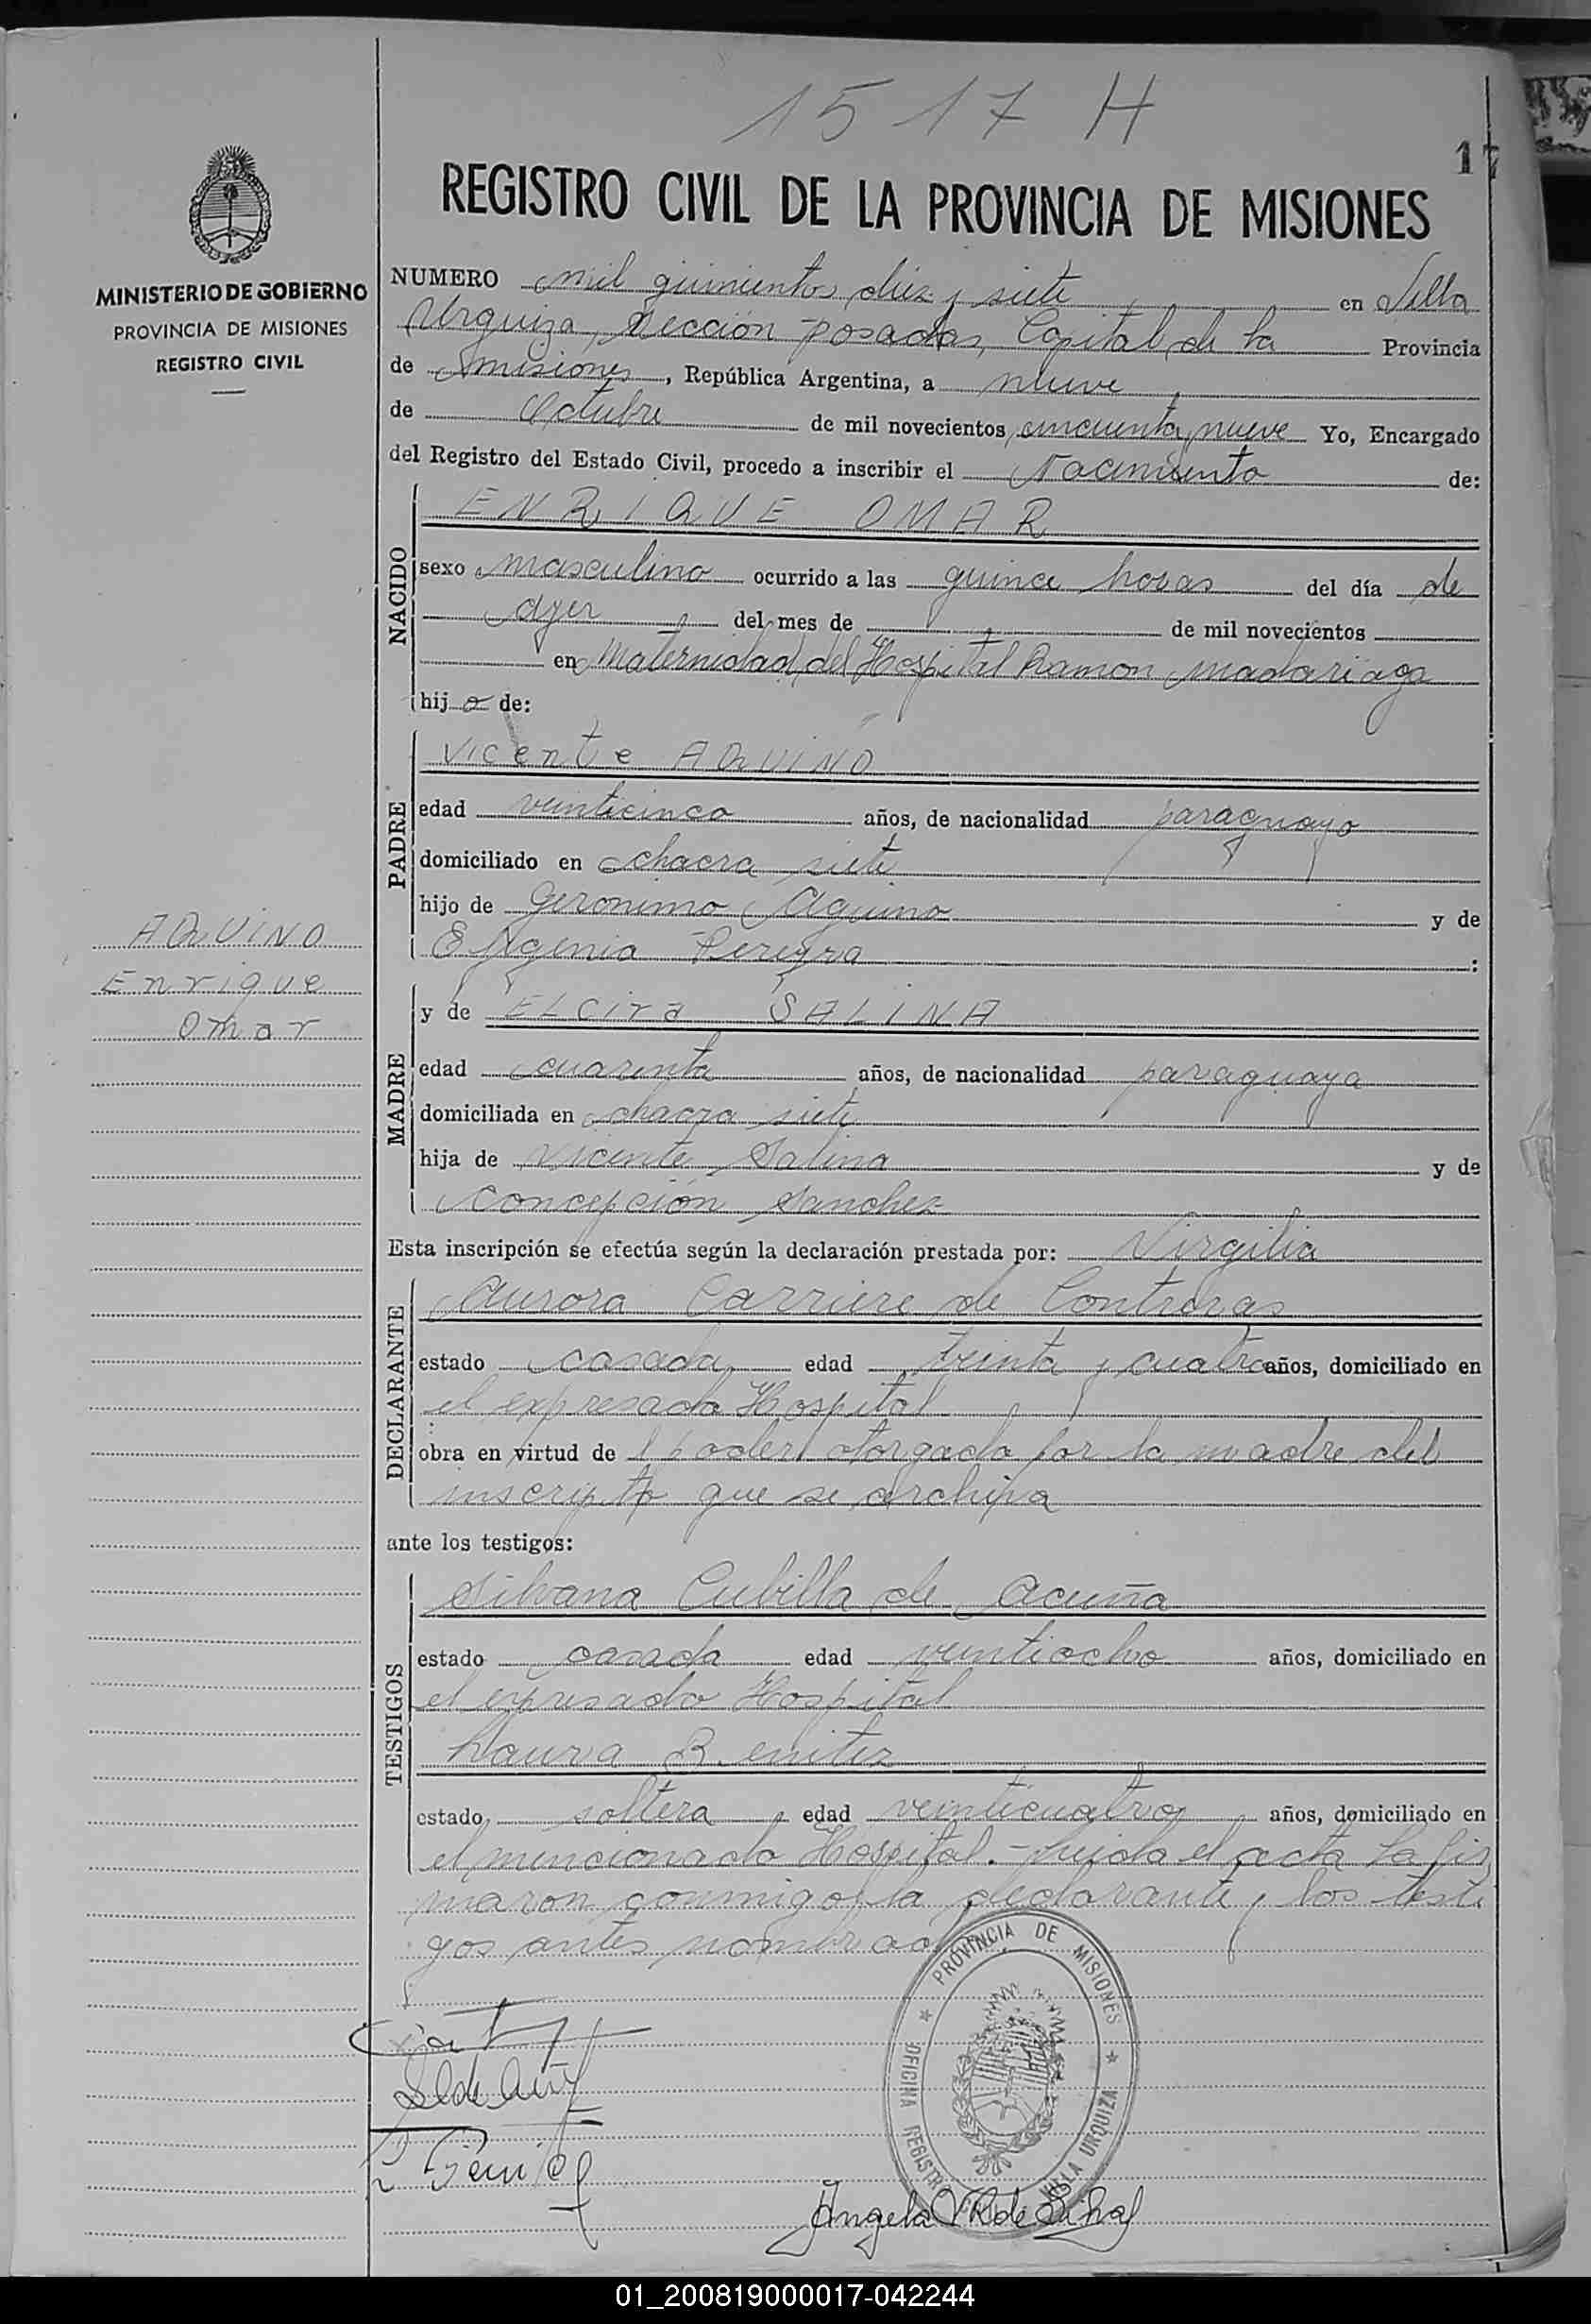 1517 H
17
REGISTRO CIVIL DE LA PROVINCIA DE MISIONES
MINISTERIO DE GOBIERNO
PROVINCIA DE MISIONES
REGISTRO CIVIL
NUMERO mil quinientos diez y siete en Villa
Urquiza, Sección Posadas, Capital de la Provincia
de Misiones, República Argentina, a nueve
de Octubre de mil novecientos cincuenta y nueve Yo, Encargado
del Registro del Estado Civil, procedo a inscribir el Nacimiento de:
NACIDO
ENRIQUE OMAR
sexo masculino ocurrido a las quince horas del día de
ayer del mes de de mil novecientos
en Maternidad del Hospital Ramon Madariaga
hijo de:
PADRE
Vicente AQUINO
edad veinticinco años, de nacionalidad paraguayo
domiciliado en chacra siete
hijo de Geronimo Aquino y de
Efigenia Pereyra :
AQUINO
Enrique
Omar
MADRE
y de ELcira SALINA
edad cuarenta años, de nacionalidad paraguaya
domiciliada en chacra siete
hija de Vicente Salina y de
Concepción Sanchez
Esta inscripción se efectúa según la declaración prestada por: Virgilia
DECLARANTE
Aurora Carriere de Contreras
estado casada edad treinta y cuatro años, domiciliado en
el expresado Hospital
obra en virtud de poder otorgado por la madre del
inscripto que se archiva
ante los testigos:
TESTIGOS
Silvana Cubilla de Acuña
estado casada edad veintiocho años, domiciliado en
el expresado Hospital
Laura Benitez
estado soltera edad veinticuatro años, domiciliado en
el mencionado Hospital.- Leida el acta la fir
maron conmigo, la declarante y los testi
gos antes nombrados
PROVINCIA DE MISIONES
OFICINA REGISTR
VILLA URQUIZA
Angela VR de
01_200819000017-042244